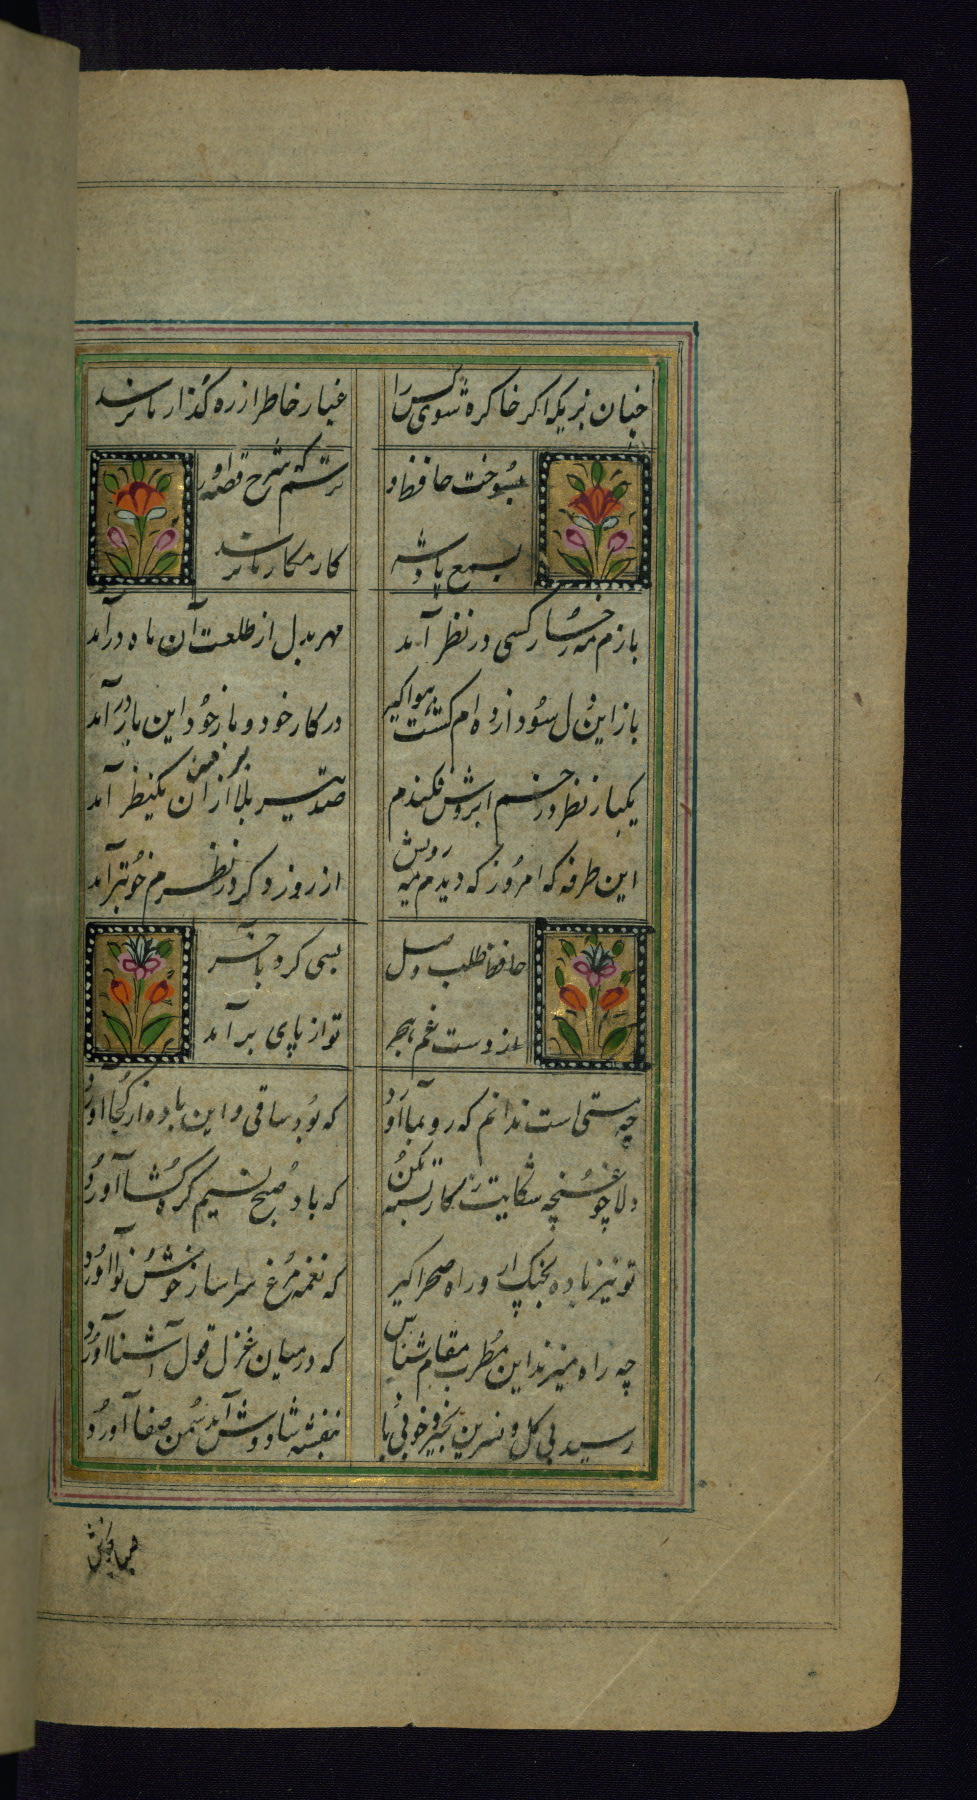 چنان بزی که اگر خاک ره شوی کس را غبار خاطر از ره گذار ما نرسد
بسوخت حافظ و ترسم که شرح قصه او
بسمع پادشه کامکار ما نرسد
بازم مه رخسار کسی در نظر آمد مهر بدل از طلعت آن ماه درآمد
باز این دل سودا زده ام گشت هواگیر در کار خود و باز خود این باز درآمد
یکباز نظر زخم ابروش فکندم صد تیر بلا بر من از آن یکنظر آمد
این طرفه که امروز که دیدم مه رویش از روز دگر در نظرم خوبتر آمد
حافظ طلب وصل بسی کرد بآخر
از دست غم هجر تو از پای برآمد
چه مستی است ندانم که رو بما آورد که بود ساقی و این باده از کجا آورد
دلا چو غنچه شکایت ز کار بسته مکن که باد صبح نسیم گره گشا آورد
تو نیز باده بچنگ آر و راه صحرا گیر که نغمه مرغ سرا ساز خوش نوا آورد
چه راه میزند این مطرب مقام شناس که در میان غزل قول آشنا آورد
رسیدن گل و نسرین بخیر و خوبی باد بنفشه شاد و وش آمد سمن صفا آورد
صبا بخوش